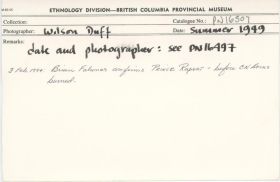 ETHNOLOGY DIVISION—BRITISH COLUMBIA PROVINCIAL MUSEUM
Collection: Catalogue No.: PN16507
Photographer: Wilson Duff Date: Summer 1949
Remarks:
date and photographer: see PN16497
3 Feb. Brian confirms Prince Rupert - before CN
burned.